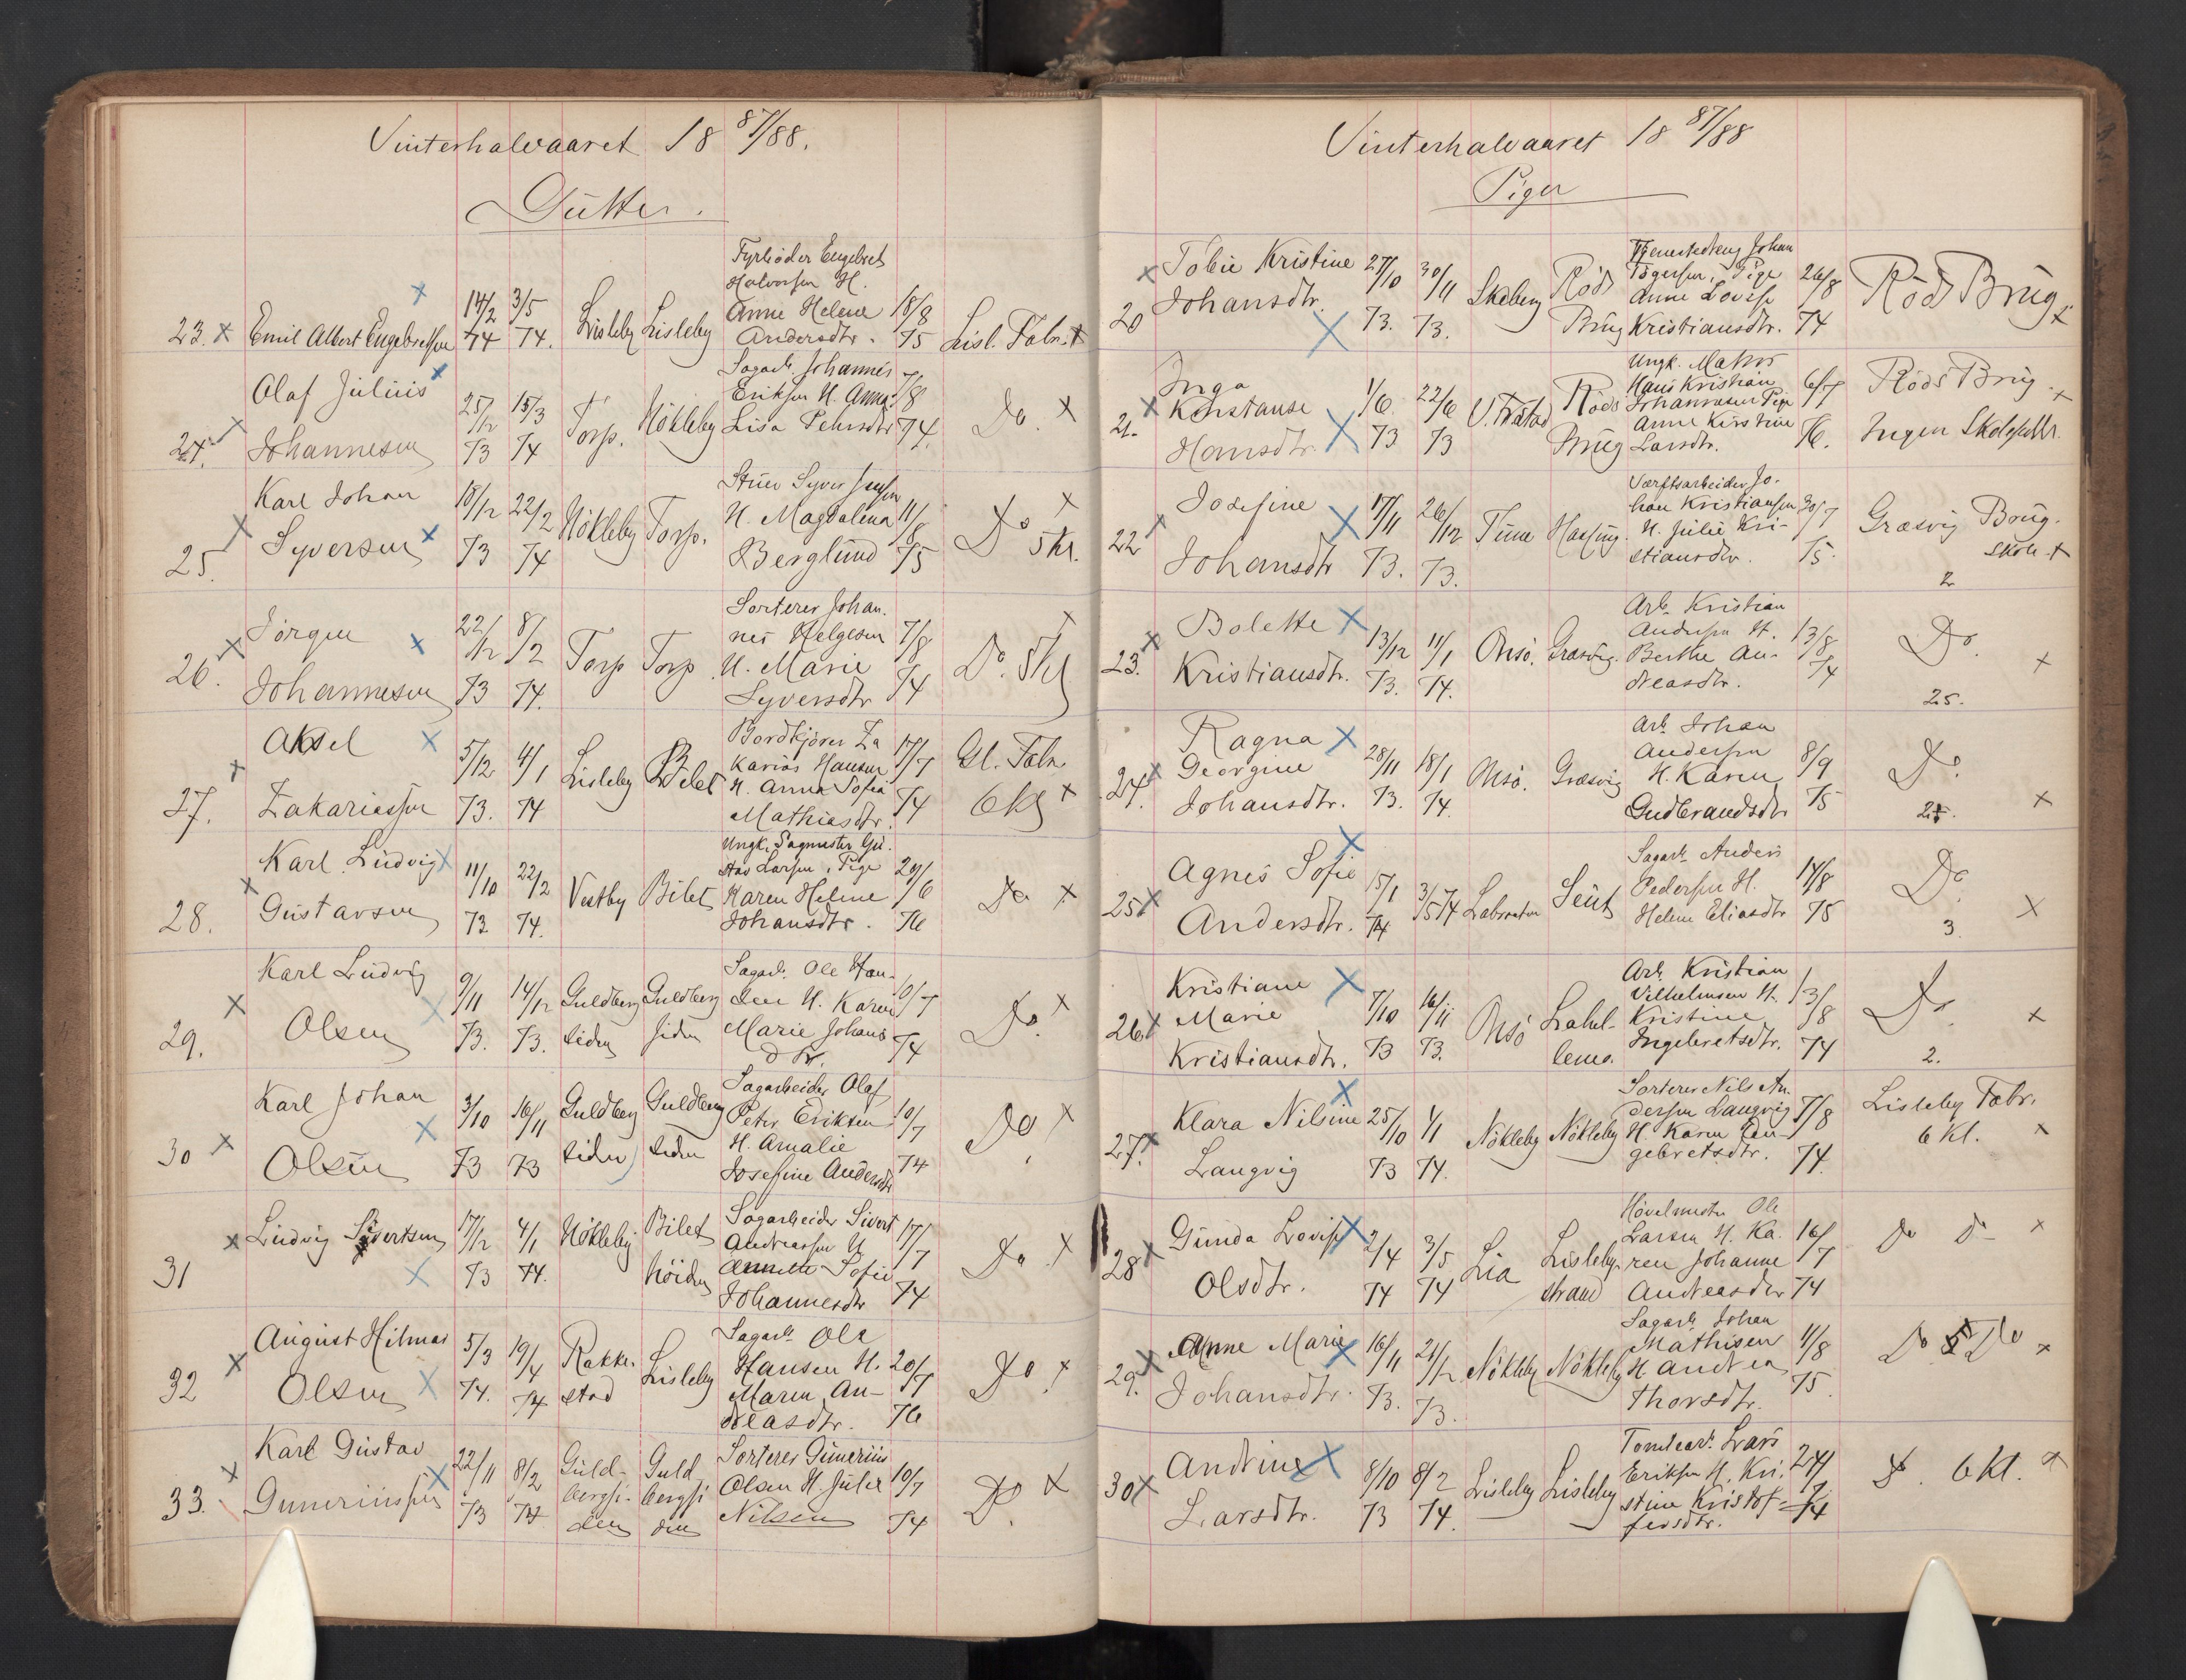 Vinterhalvaaret 18 87/88.
Gutter.
23. Emil Albert Engebretsen 14/2 74 3/5 74. Lisleby Lisleby
Fyrbøder Engebret
Halvorsen H.
Anne Helene
Andersdtr.
18/8 75 Lisl. Fabr.
24. Olaf Julius
Johannesen
25/12 73 15/3 74 Torp. Nökleby
Sagarb. Johannes
Eriksen H. Anna
Lisa Pehrsdtr
7/8 74. Do.
25. Karl Johan
Syversen
18/12 73 22/2 74 Nökleby Torp.
Stuer Syver Jensen
H. Magdalena
Berglund
11/8 75 Do 5 Kl.
26. Jörgen
Johannesen
22/12 73 8/2 74. Torp Torp
Sorterer Johan.
nes Helgesen
H. Marie
Syversdtr
7/8 74 Do. 5 Kl
27. Aksel
Zakariassen
5/12 73. 4/1 74 Lisleby Bilet
Bordkjörer Za
karias Hansen
H. Anna Sofia
Mathiasdtr.
17/7 74 Gl. Fabr.
6 Kl
28. Karl Ludvig
Gustavsen
11/10 73 22/2 74. Vestby Bilet
Ungk. Sagmester Gu.
stav Larsen, Pige
Karen Helene
Johansdtr.
29/6 76 Do
29. Karl Ludvig
Olsen
9/11 73. 14/12 73. Guldberg
siden
Guldberg
siden
Sagarb. Ole Han.
sen H. Karen
Marie Johans
dtr.
10/7 74 Do.
30 Karl Johan
Olsen
3/10 73 16/11 73 Guldberg
siden
Guldberg
siden
Sagarbeider Olaf
Peter Eriksen
H. Amalie
Josefine Andersdtr
10/7 74 Do.
31 Ludvig Sivertsen 17/12 73 4/1 74. Nökleby Bilet
höiden
Sagarbeider Sivert
Andreassen H
Annette Sofie
Johannesdtr
17/7 74 Do
32 August Hilmar
Olsen
5/3 74. 19/4 74 Rakke.
stad
Lisleby
Sagarb. Ole
Hansen H.
Maren An-
dreasdtr.
20/7 76 Do.
33. Karl Gustav
Gunerinssen
22/11 73 8/2 74 Guld-
bergsi-
den
Guld
bergsi
den
Sorterer Gunerius
Olsen H. Julie
Nilsen
10/7 74 Do.
Vinterhalvaaret 18 87/88
Piger
20 Tobie Kristine
Johansdtr.
27/10 73. 30/11 73. Skeberg Röds
Brug
Johan
Tögersen, Pige
Anne Lovise
Kristiansdtr.
26/8 74 Röds Brug
21. Inga
Konstanse
Hansdtr.
1/6. 73 22/6 73 V. Röds
Brug
Ungk. Matros
Hans Kristian
Johannesen Pige
Anne Kirstine
Larsdtr.
6/7 76. Röds Brug.
Ingen Skole
22 Josefine
Johansdtr
17/11 73. 26/12 73. Tune
Værftsarbeider Jo-
han Kristiansen
H. Julie Kri-
stiansdtr.
30/7 75. Græsvig Brug.
Skole
2
23. Bolette
Kristiansdtr.
13/12 73. 11/1 74. Onsö. Græsvig.
Arb. Kristian
Andersen H.
Berthe An-
dreasdtr.
13/8 74 Do.
25.
24. Ragna
Georgine
Johansdtr.
28/11 73. 18/1 74. Onsö. Græsvig
Arb. Johan
Andersen
H. Karen
Gudbrandsdtr
8/9 75 Do.
25 Agnes Sofie
Andersdtr.
15/1 74 3/5 74 Seut
Sagarb. Anders
Pedersen H.
Helene Eliasdtr
14/8 75 Do.
3.
26 Kristiane
Marie
Kristiansdtr.
7/10 73 16/11 73. Onsö
Arb. Kristian
Vilhelmsen H.
Kristine
Ingebretsdtr.
13/8 74 Do.
2.
27. Klara Nilsine
Langvig
25/10 73 4/1 74. Nökleby Nökleby
Sorterer Nils An.
dersen Langvig
H. Karen En-
gebretsdtr.
7/8 74. Lisleby Fabr.
6 Kl.
28 Gunda Lovise
Olsdtr.
2/4 74 3/5 74 Lia Lisleby-
strand
Hövelmester Ole
Larsen H. Ka.
ren Johanne
Andreasdtr
16/7 74 Do Do
29. Anne Marie
Johansdtr.
16/11 73. 21/12 73. Nökleby Nökleby
Sagarb. Johan
Mathisen
H Andrea
Thorsdtr.
11/8 75. Do 5 Do
30 Andrine
Larsdtr.
8/10 73 8/2 74. Lisleby Lisleby
Tomtearb. Lars
Eriksen H. Kri.
stine Kristof-
fersdtr.
24/7 74 Do. 6 Kl.